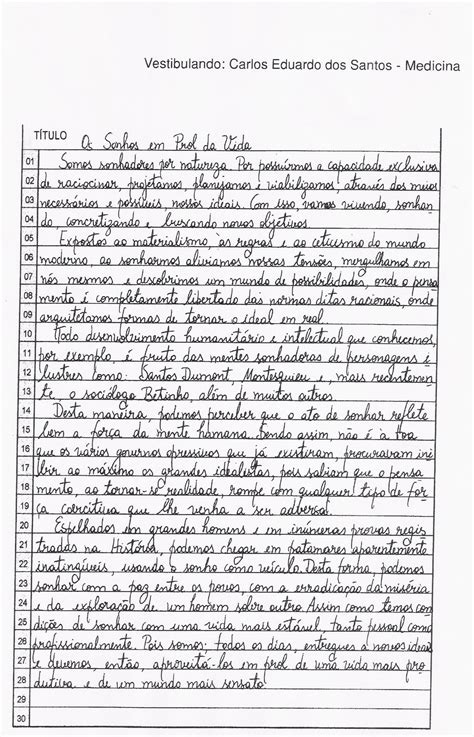 Vestibulando: Carlos Eduardo dos Santos - Medicina
TÍTULO Os Sonhos em Prol da Vida
01 Somos sonhadores por natureza. Por possuirmos a capacidade exclusiva
02 de raciocinar, projetamos, planejamos e viabilizamos, através dos meios
03 necessários e possíveis, nossos ideais. Com isso, vamos vivendo, sonhan-
04 do, concretizando e buscando novos objetivos.
05 Expostos ao materialismo, às regras e ao ceticismo do mundo
06 moderno, ao sonharmos aliviamos nossas tensões, mergulhamos em
07 nós mesmos e descobrimos um mundo de possibilidades, onde o pensa-
08 mento é completamente libertado das normas ditas racionais, onde
09 arquitetamos formas de tornar o ideal em real.
10 Todo desenvolvimento humanitário e intelectual que conhecemos,
11 por exemplo, é fruto das mentes sonhadoras de personagens i-
12 lustres como: Santos Dumont, Montesquieu e, mais recentemen-
13 te, o sociólogo Betinho, além de muitos outros.
14 Desta maneira, podemos perceber que o ato de sonhar reflete
15 bem a força da mente humana. Sendo assim, não é à toa
16 que os vários governos opressivos que já existiram, procuraram ini-
17 bir ao máximo os grandes idealistas, pois sabiam que o pensa-
18 mento, ao tornar-se realidade, rompe com qualquer tipo de for-
19 ça coercitiva que lhe venha a ser adversa.
20 Espelhados em grandes homens e em inúmeras provas regis-
21 tradas na História, podemos chegar em patamares aparentemente
22 inatingíveis, usando o sonho como veículo. Desta forma, podemos
23 sonhar com a paz entre os povos, com a erradicação da miséria
24 e da exploração de um homem sobre outro. Assim como temos con-
25 dições de sonhar com uma vida mais estável, tanto pessoal como
26 profissionalmente. Pois somos, todos os dias, entregues a novos ideais
27 e devemos, então, aproveitá-los em prol de uma vida mais pro-
28 dutiva e de um mundo mais sensato.
29
30